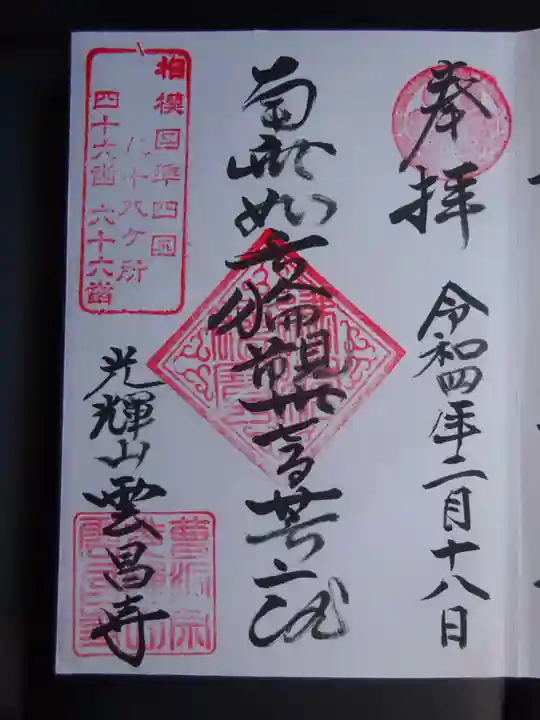 奉拝
令和四年二月十八日
南無如意輪観世音菩薩
相模国準四国
八十八ケ所
四十六番 六十六番
光輝山雲昌寺